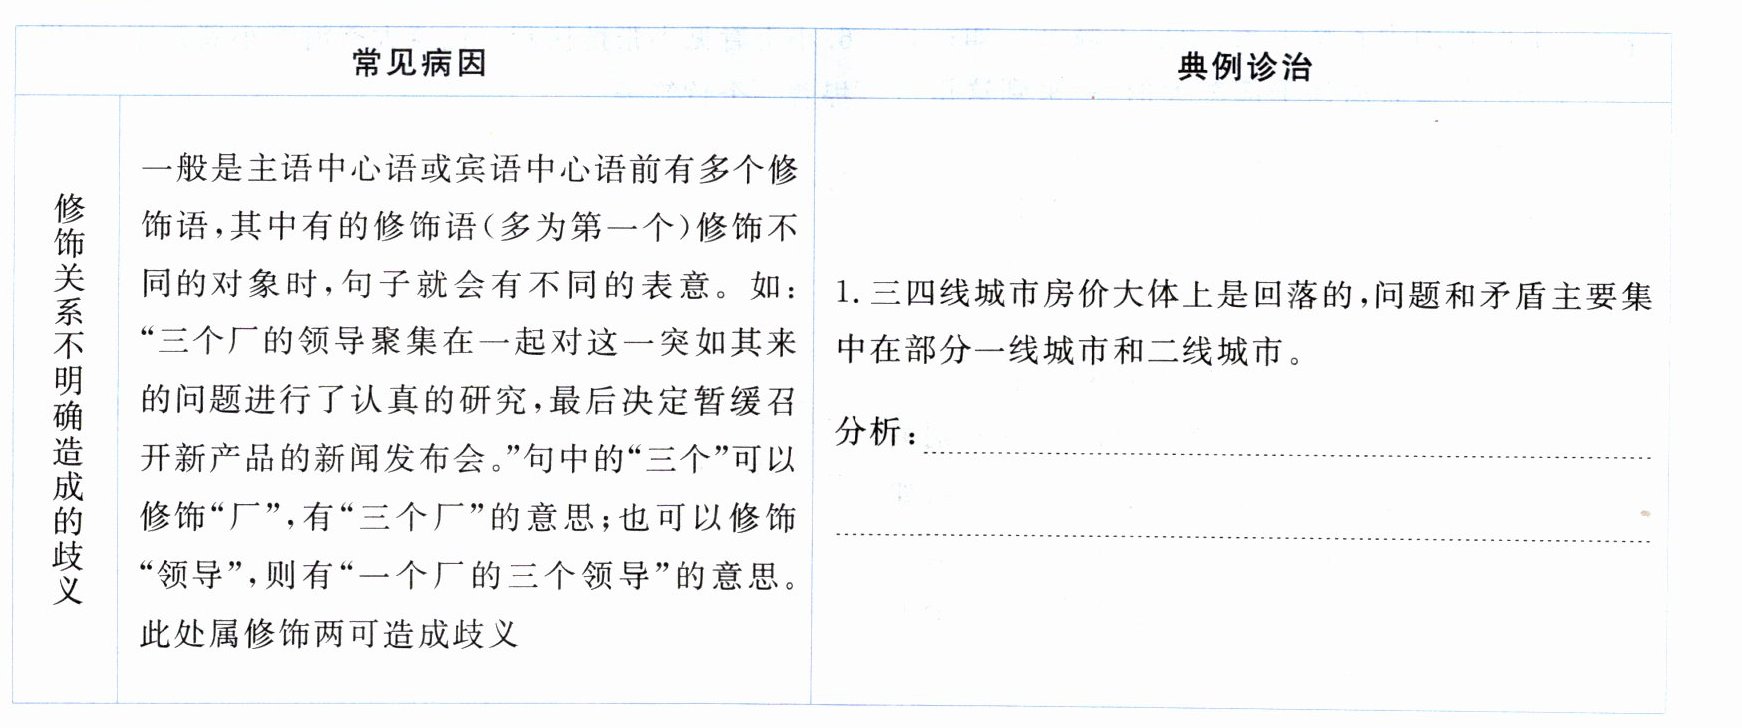 常见病因
典例诊治
修饰关系不明确造成的歧义
一般是主语中心语或宾语中心语前有多个修
饰语,其中有的修饰语(多为第一个)修饰不
同的对象时,句子就会有不同的表意。如:
“三个厂的领导聚集在一起对这一突如其来
的问题进行了认真的研究,最后决定暂缓召
开新产品的新闻发布会。”句中的“三个”可以
修饰“厂”,有“三个厂”的意思;也可以修饰
“领导”,则有“一个厂的三个领导”的意思。
此处属修饰两可造成歧义
1. 三四线城市房价大体上是回落的,问题和矛盾主要集
中在部分一线城市和二线城市。
分析: